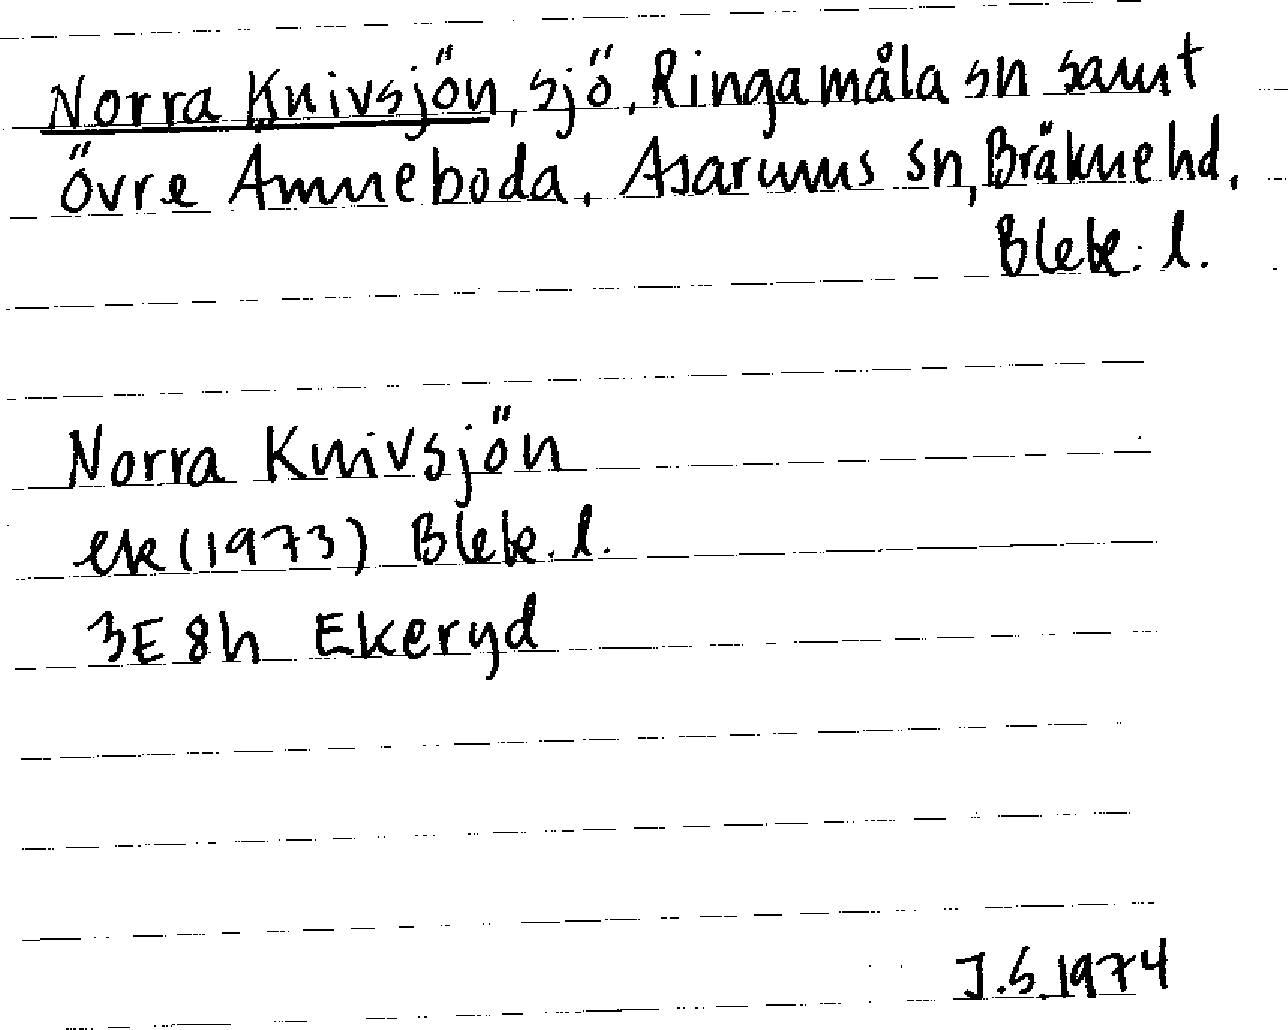 Norra Knivsjön, sjö, Ringamåla sn samt
Övre Amneboda, Asarums sn, Bräkne hd,
Blek. l.
Norra Knivsjön
ek (1973) Blek. l.
3E 8h Ekeryd
J.S. 1974